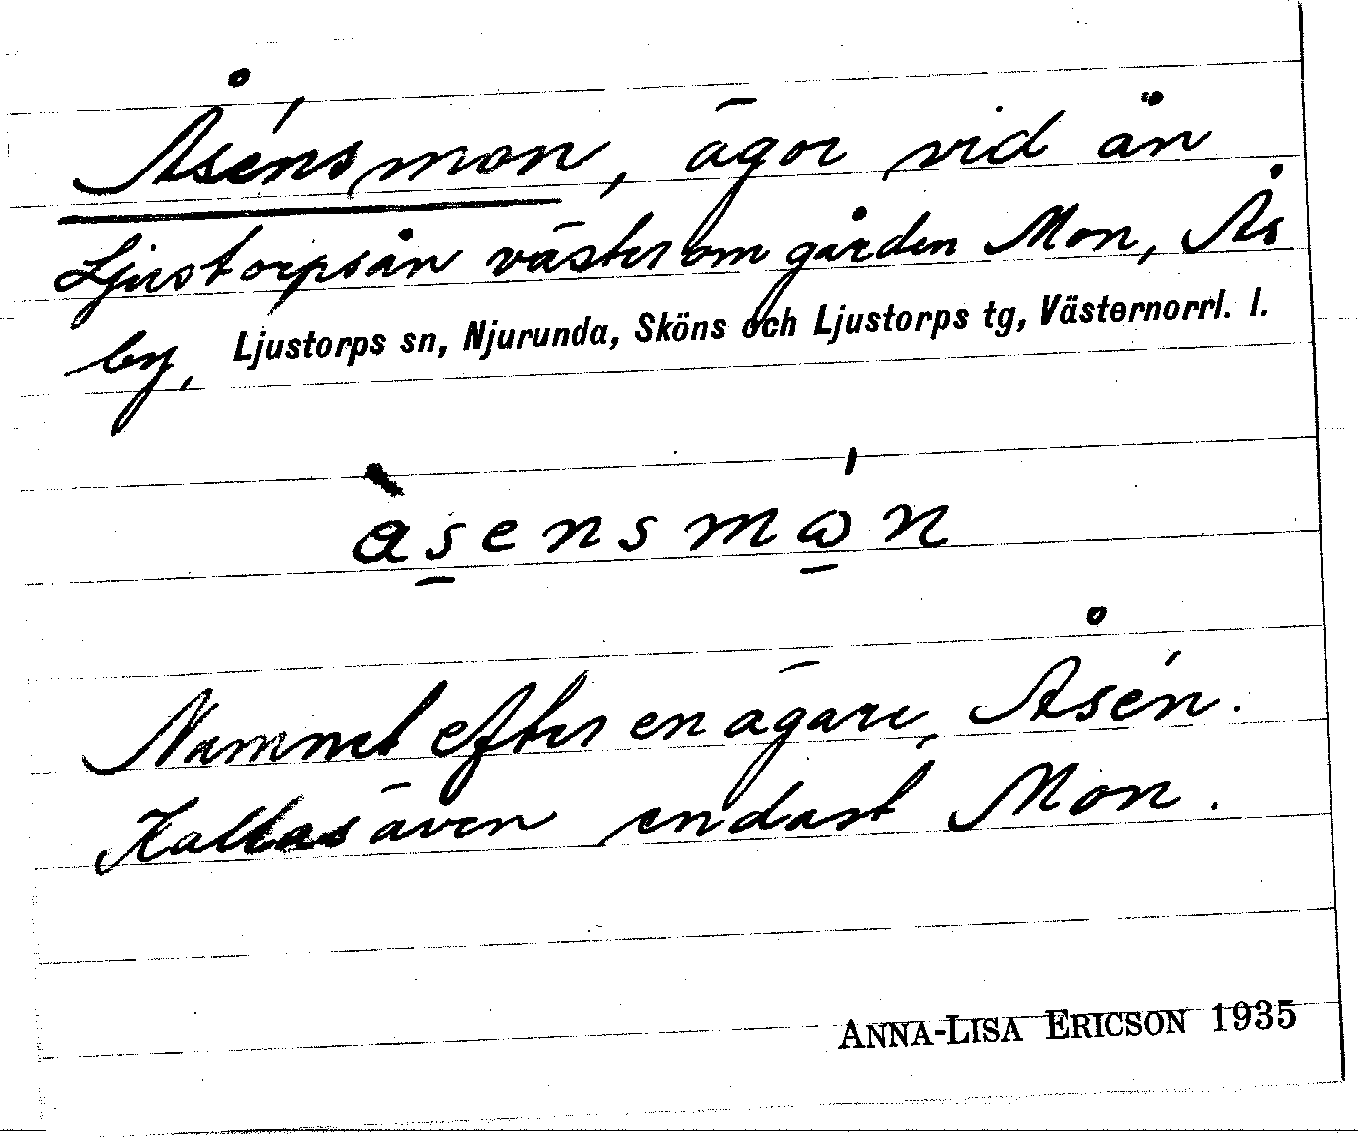 Åsénsmon, ägor vid ån
Ljustorpsån väster om gården Mon, Ås
by, Ljustorps sn, Njurunda, Sköns och Ljustorps tg, Västernorrl. l.
Namnet efter en ägare, Åsén.
Kallas även endast Mon.
ANNA-LISA ERICSON 1935